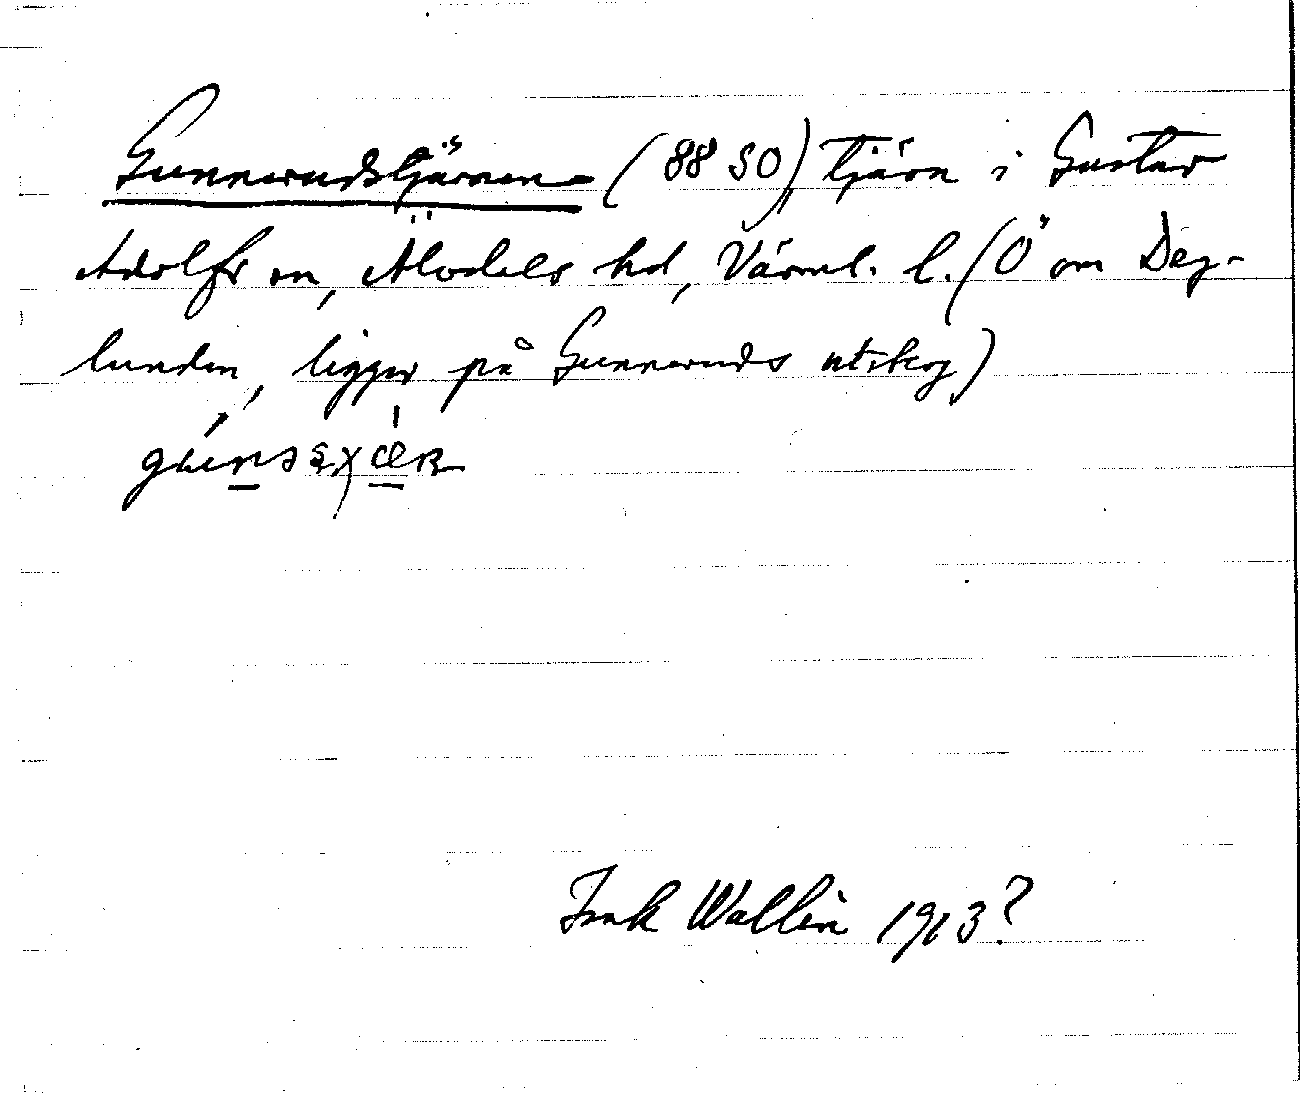 Gunnerudstjärnen (88 SO) tjärn i Gustav
Adolfs sn, Älvdals hd, Värml. l. (Ö om Deg-
lunden, ligger på Gunneruds utskog)
Wallin 1913?